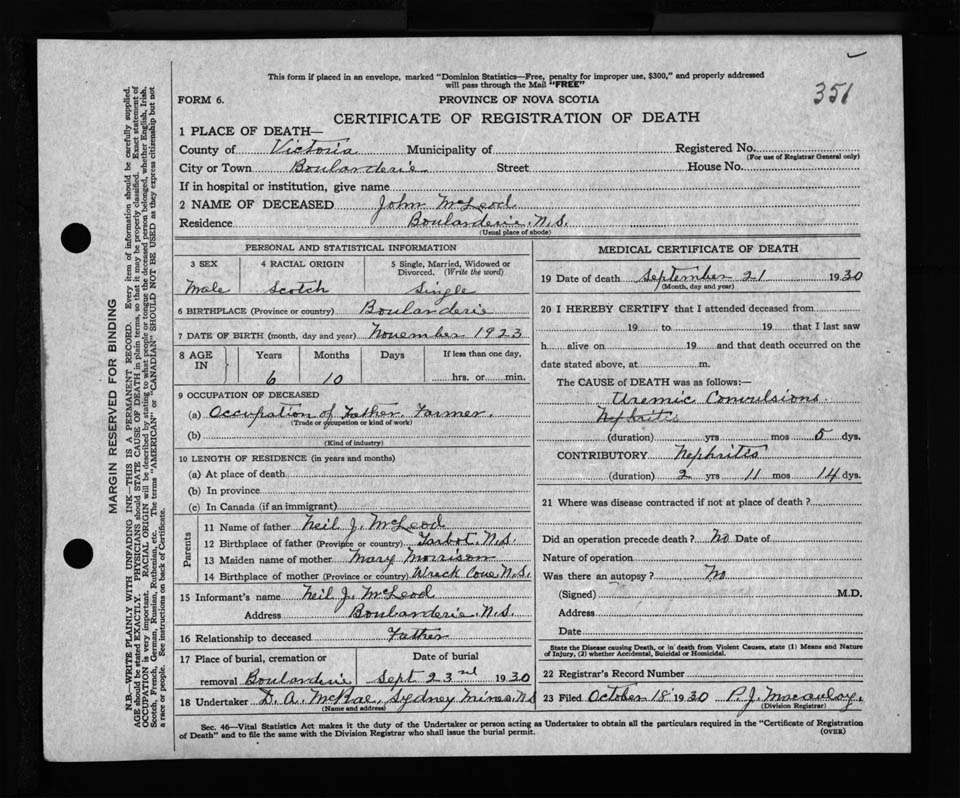 This form if placed in an envelope, marked "Dominion Statistics—Free, penalty for improper use, $300," and properly addressed
will pass through the Mail "FREE"
351
FORM 6.
PROVINCE OF NOVA SCOTIA
CERTIFICATE OF REGISTRATION OF DEATH
1 PLACE OF DEATH—
County of Victoria Municipality of Registered No.
(For use of Registrar General only)
City or Town Boularderie Street House No.
If in hospital or institution, give name
2 NAME OF DECEASED John McLeod
Residence Boularderie, N.S.
(Usual place of abode)
PERSONAL AND STATISTICAL INFORMATION
3 SEX 4 RACIAL ORIGIN 5 Single, Married, Widowed or
Divorced. (Write the word)
Male Scotch Single
6 BIRTHPLACE (Province or country) Boularderie
7 DATE OF BIRTH (month, day and year) November 1923
8 AGE IN Years Months Days If less than one day,
6 10 hrs. or min.
9 OCCUPATION OF DECEASED
(a) Occupation of Father Farmer.
(Trade or occupation or kind of work)
(b)
(Kind of industry)
10 LENGTH OF RESIDENCE (in years and months)
(a) At place of death
(b) In province
(c) In Canada (if an immigrant)
Parents
11 Name of father Neil J. McLeod
12 Birthplace of father (Province or country) Tarbot, N.S.
13 Maiden name of mother Mary Morrison
14 Birthplace of mother (Province or country) Wrack Cove, N.S.
15 Informant's name Neil J. McLeod
Address Boularderie, N.S.
16 Relationship to deceased Father
17 Place of burial, cremation or Date of burial
removal Boularderie Sept 23rd 1930
18 Undertaker D. A. McRae, Sydney Mines, N.S.
(Name and address)
MEDICAL CERTIFICATE OF DEATH
19 Date of death September 21 1930
(Month, day and year)
20 I HEREBY CERTIFY that I attended deceased from
19 to 19 that I last saw
h alive on 19 and that death occurred on the
date stated above, at m.
The CAUSE of DEATH was as follows:—
Uremic Convulsions.
Nephritis
(duration) yrs mos 5 dys.
CONTRIBUTORY Nephritis
(duration) 2 yrs 11 mos 14 dys.
21 Where was disease contracted if not at place of death?
Did an operation precede death? No Date of
Nature of operation
Was there an autopsy? No
(Signed) M.D.
Address
Date
State the Disease causing Death, or in death from Violent Causes, state (1) Means and Nature
of Injury, (2) whether Accidental, Suicidal or Homicidal.
22 Registrar's Record Number
23 Filed October 18 1930 P. J. Macaulay,
(Division Registrar)
Sec. 46—Vital Statistics Act makes it the duty of the Undertaker or person acting as Undertaker to obtain all the particulars required in the "Certificate of Registration
of Death" and to file the same with the Division Registrar who shall issue the burial permit.
(OVER)
MARGIN RESERVED FOR BINDING
N.B.—WRITE PLAINLY WITH UNFADING INK—THIS IS A PERMANENT RECORD. Every item of information should be carefully supplied.
AGE should be stated EXACTLY. PHYSICIANS should STATE CAUSE OF DEATH in plain terms, so that it may be properly classified. Exact statement of
OCCUPATION is very important. RACIAL ORIGIN will be described by stating to what people or tongue the deceased person belonged, whether English, Irish,
Scotch, French, German, Russian, Ruthenian, etc. The terms "AMERICAN" or "CANADIAN" SHOULD NOT BE USED as they express citizenship but not
a race or people. See instructions on back of Certificate.